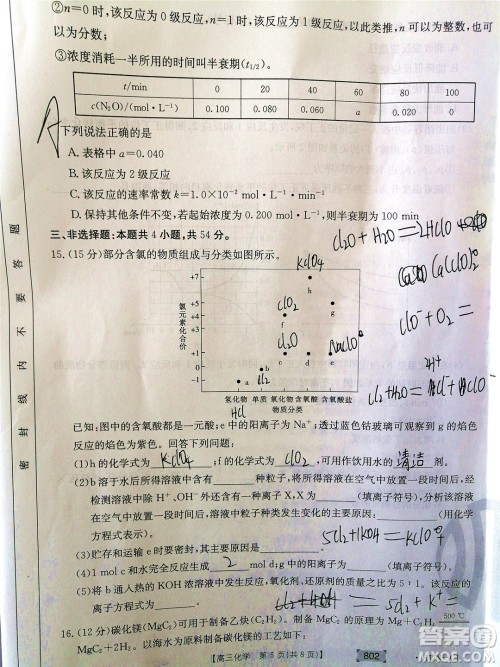 ②n=0时,该反应为0级反应,n=1时,该反应为1级反应,以此类推,n可以为整数,也可
以为分数;
③浓度消耗一半所用的时间叫半衰期(t₁/₂)。
t/min 0 20 40 60 80 100
c(N₂O)/(mol·L⁻¹) 0.100 0.080 0.060 a 0.020 0
A
下列说法正确的是
A.表格中a=0.040
B.该反应为2级反应
C.该反应的速率常数k=1.0×10⁻² mol·L⁻¹·min⁻¹
D.保持其他条件不变,若起始浓度为0.200 mol·L⁻¹,则半衰期为100 min
Cl2O+H2O=2HClO
三、非选择题:本题共4小题,共54分。
15.(15分)部分含氯的物质组成与分类如图所示。
KClO4
Ca(ClO)2
ClO⁻+O2=
氯元素化合价
+7
+5
+4
+3
+1
0
-1
h
g
f
e
d
c
b
a
ClO2
Cl2O
NaClO
Cl2
HCl
氢化物 单质 氧化物 含氧酸 含氧酸盐
物质分类
已知:图中的含氧酸都是一元酸;e中的阳离子为Na⁺;透过蓝色钴玻璃可观察到g的焰色
反应的焰色为紫色。回答下列问题:
(1)h的化学式为 KClO4 ;f的化学式为 ClO2 ,可用作饮用水的 清洁 剂。
(2)b溶于水后所得溶液中含有 种粒子,将该溶液在空气中放置一段时间后,经
检测溶液中除H⁺、OH⁻外还含有一种离子X,X为 (填离子符号),分析b溶液在
空气中放置一段时间,溶液中粒子种类发生变化的主要原因: (用化学
方程式表示)。
5Cl2+KOH=KClO4
(3)贮存和运输e时要密闭,其主要原因是 。
(4)1 mol c和水完全反应生成 2 mol d;g的阴离子为 (填离子符号)。
(5)将b通入热的KOH浓溶液中发生反应,氧化剂、还原剂的质量之比为5:1。该反应的
离子方程式为
5Cl2+K⁺=
16.(12分)碳化镁(MgC₂)可用于制备乙炔(C₂H₂)。制备碳化镁的原理为Mg+
500 ℃
MgC₂+2HCl。以海水为原料制备碳化镁工艺
【高三化学 第5页(共8页)】
802
答案圈
MXQE.COM
密 封 线 内 不 要 答 题